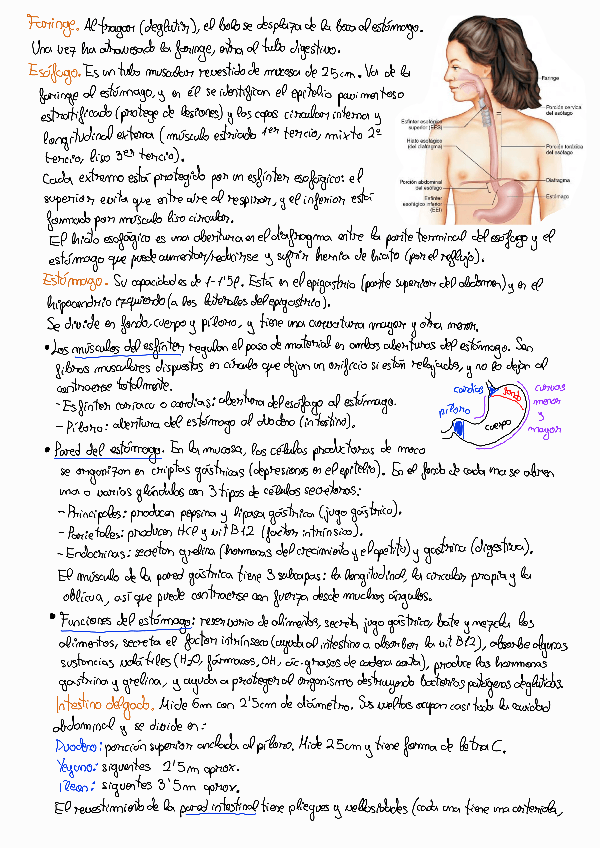 Faringe. Al tragar (deglutir), el bolo se desplaza de la boca al estómago.
Una vez ha atravesado la faringe, entra al tubo digestivo.
Esófago. Es un tubo muscular revestido de mucosa de 25cm. Va de la
faringe al estómago, y en él se identifican el epitelio pavimentoso
estratificado (protege de lesiones) y las capas circular interna y
longitudinal externa (músculo estriado 1er tercio, mixto 2º
tercio, liso 3er tercio).
Cada extremo está protegido por un esfínter esofágico: el
superior evita que entre aire al respirar, y el inferior está
formado por músculo liso circular.
El hiato esofágico es una abertura en el diafragma entre la parte terminal del esófago y el
estómago que puede aumentar/reducirse y sufrir hernia de hiato (por el reflujo).
Faringe
Porción cervical
del esófago
Esfínter esofágico
superior (EES)
Hiato esofágico
(del diafragma)
Porción torácica
del esófago
Porción abdominal
del esófago
Diafragma
Esfínter
esofágico inferior
(EEI)
Estómago
Estómago. Su capacidad es de 1-1'5l. Está en el epigastrio (parte superior del abdomen) y en el
hipocondrio izquierdo (a los laterales del epigastrio).
Se divide en fondo, cuerpo y píloro, y tiene una curvatura mayor y otra menor.
• Los músculos del esfínter regulan el paso de material en ambas aberturas del estómago. Son
fibras musculares dispuestas en círculo que dejan un orificio si están relajadas, y no lo dejan al
contraerse totalmente.
- Esfínter cardiaco o cardias: abertura del esófago al estómago.
- Píloro: abertura del estómago al duodeno (intestino).
cardias
fondo
píloro
cuerpo
curvas
menor
y
mayor
• Pared del estómago. En la mucosa, las células productoras de moco
se organizan en criptas gástricas (depresiones en el epitelio). En el fondo de cada una se abren
una o varias glándulas con 3 tipos de células secretoras:
- Principales: producen pepsina y lipasa gástrica (jugo gástrico).
- Parietales: producen HCl y vit B12 (factor intrínseco).
- Endocrinas: secretan grelina (hormonas del crecimiento y el apetito) y gastrina (digestiva).
El músculo de la pared gástrica tiene 3 subcapas: la longitudinal, la circular propia y la
oblicua, así que puede contraerse con fuerza desde muchos ángulos.
• Funciones del estómago: reservorio de alimentos, secreta jugo gástrico, bate y mezcla los
alimentos, secreta el factor intrínseco (ayuda al intestino a absorber la vit B12), absorbe algunas
sustancias volátiles (H2O, fármacos, OH, ác. grasos de cadena corta), produce las hormonas
gastrina y grelina, y ayuda a proteger al organismo destruyendo bacterias patógenas deglutidas.
Intestino delgado. Mide 6m con 2'5cm de diámetro. Sus vueltas ocupan casi toda la cavidad
abdominal y se divide en:
Duodeno: porción superior anclada al píloro. Mide 25cm y tiene forma de letra C.
Yeyuno: siguientes 2'5m aprox.
Íleon: siguentes 3'5m aprox.
El revestimiento de la pared intestinal tiene pliegues y vellosidades (cada una tiene una arteriola,